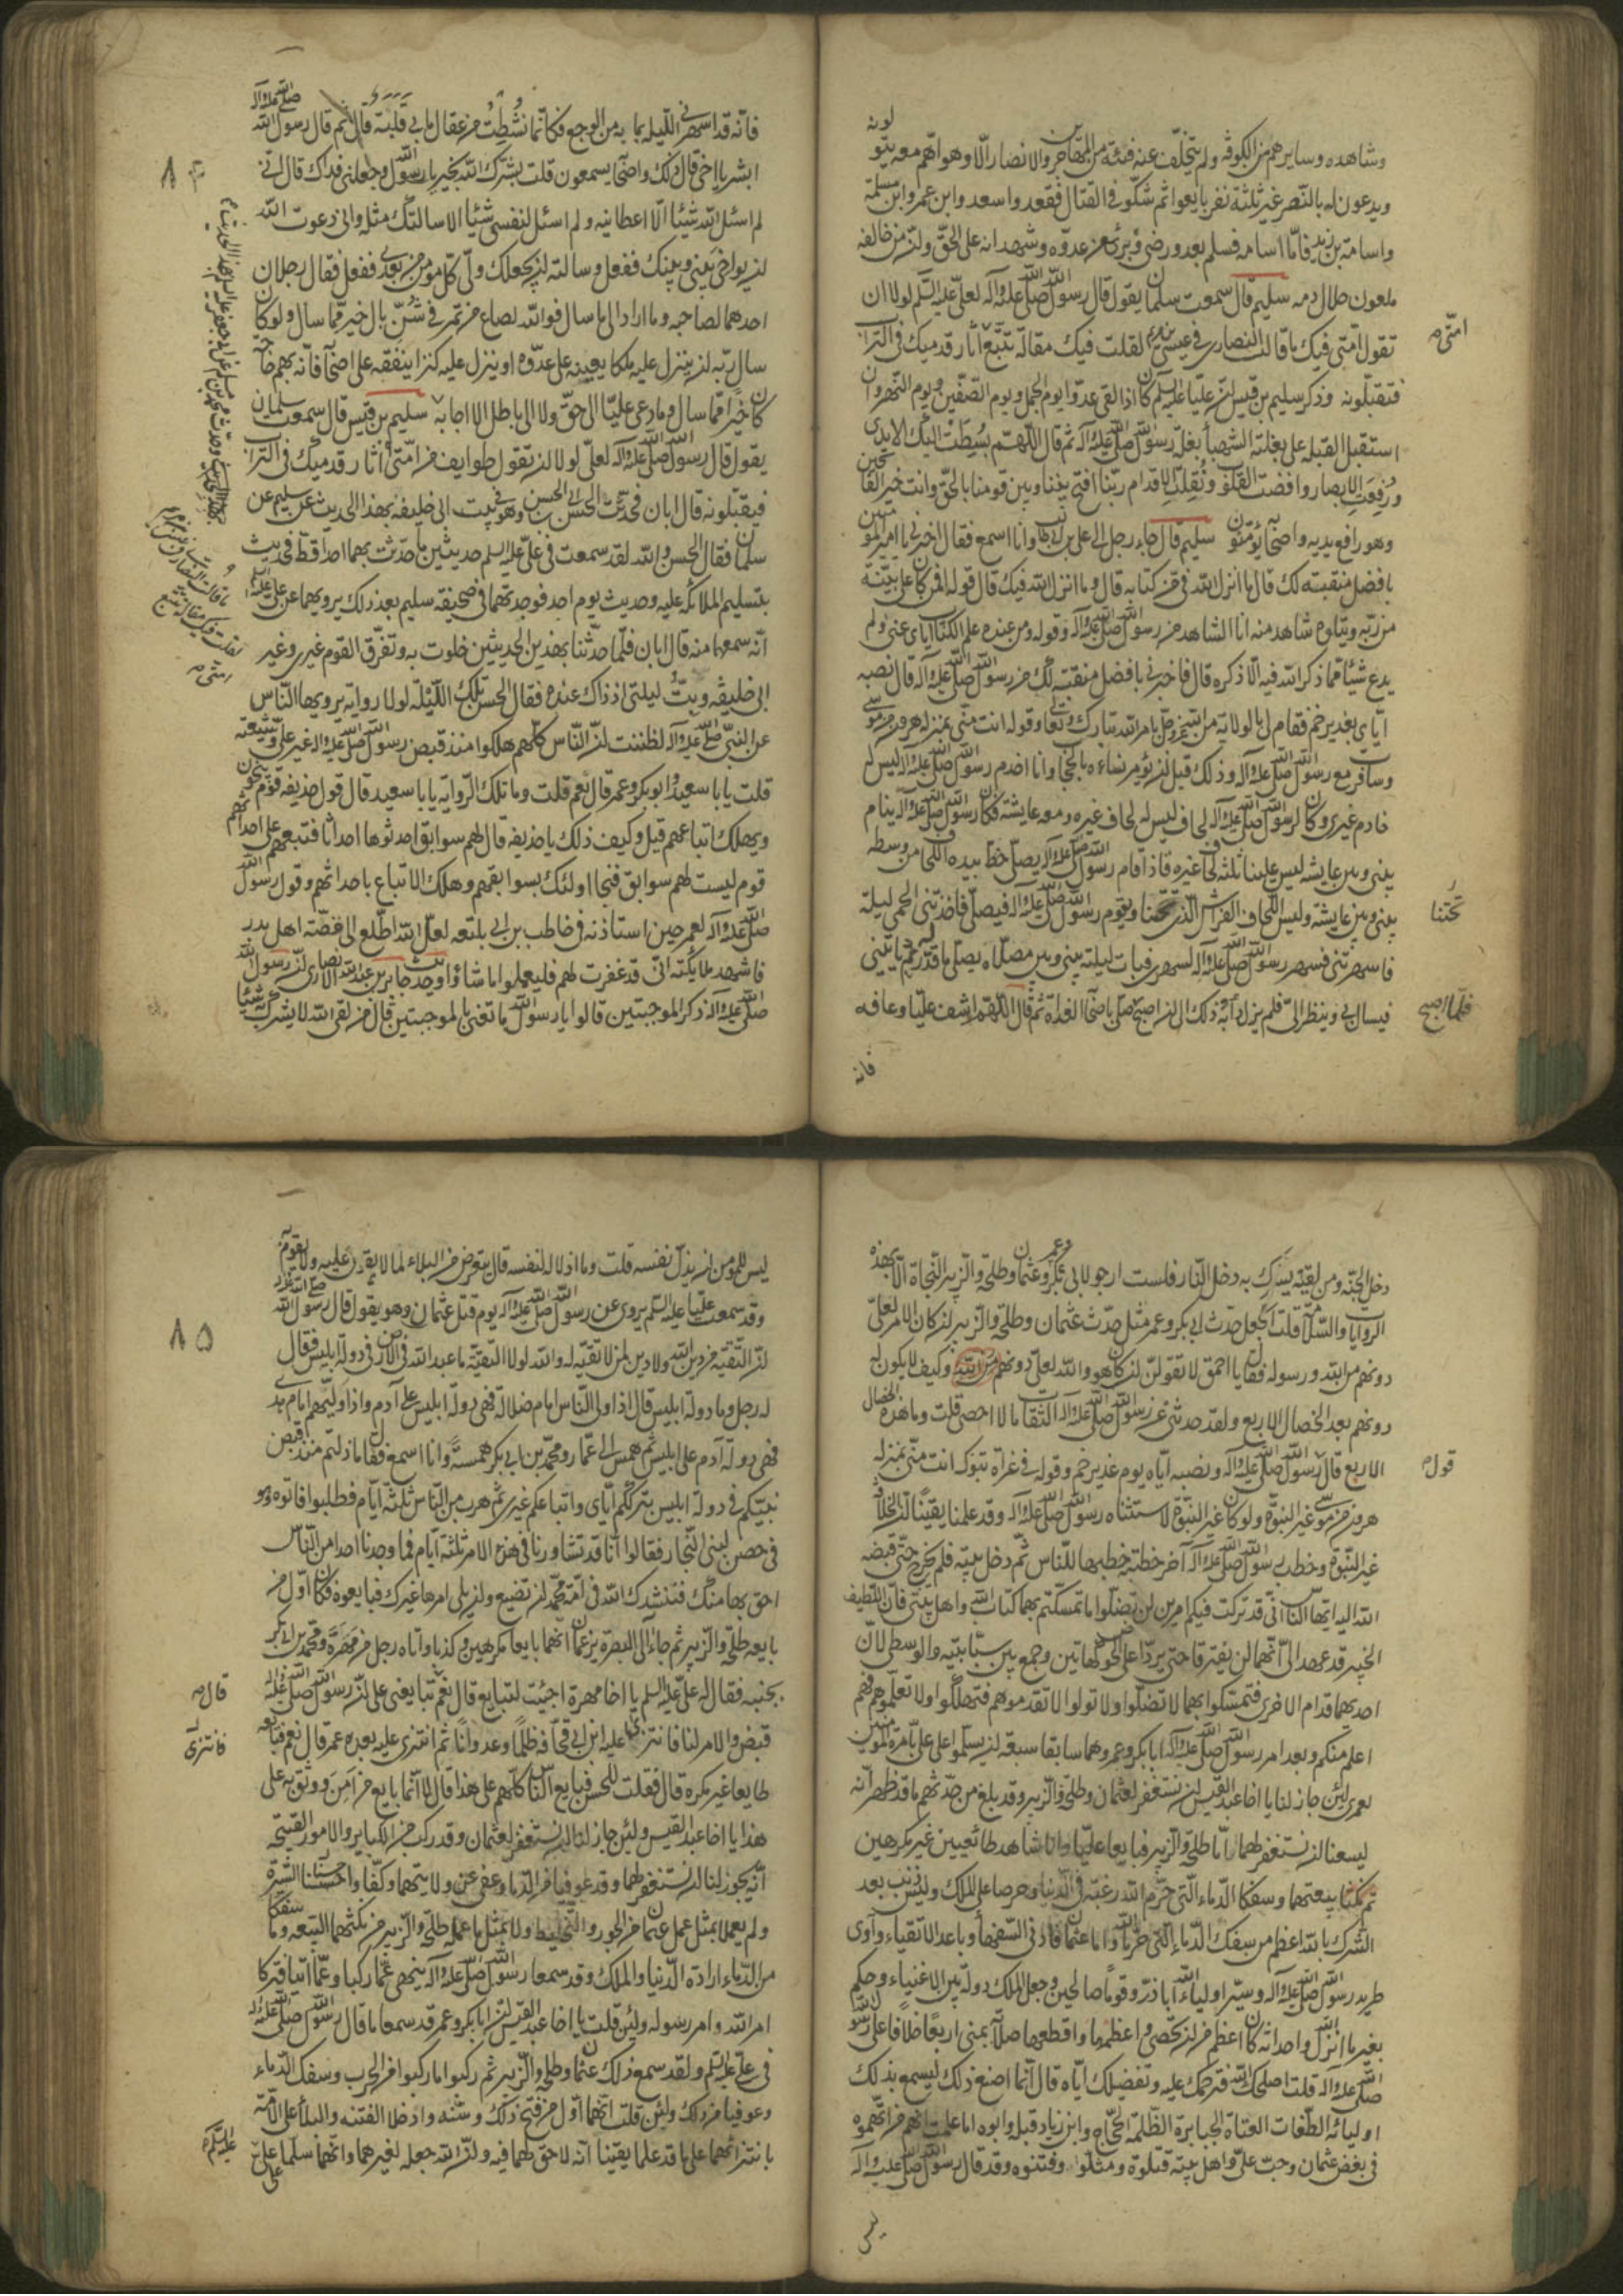 وشاهده وسايرهم من الكوفة ولم يتخلف عنه فئة من المهاجرين والانصار الا وهواهم معه يتولونه
ويدعون له بالنصر غير ثلثة نفر بايعوا ثم شكوا في القتال فقعدوا سعد وابن عمر وابن مسلمة
واسامة بن زيد فاما اسامة فسلم بعد ورضي وبرئ من عدوه وشهد انه على الحق وان من خالفه
ملعون حلال دمه سليم قال سمعت سلمان يقول قال رسول الله صلى الله عليه وآله لعلي عليه السلم لولا ان
تقول امتي فيك ما قالت النصارى في عيسى بن مريم لقلت فيك مقالة تتبع آثار قدميك في التراب
فتقبلونه وذكر سليم بن قيس ان عليا عليه السلم كان اذا لقي عدوا يوم الجمل ويوم الصفين ويوم النهروان
استقبل القبلة على بغلته الشهبا بغلة رسول الله صلى الله عليه وآله ثم قال اللهم بسطت اليك الايدي
ورفعت الابصار وافضت القلوب ونقلت الاقدام ربنا افتح بيننا وبين قومنا بالحق وانت خير الفاتحين
وهو رافع يديه واصحابه يؤمنون سليم قال جاء رجل الى علي بن ابي طالب وانا اسمع فقال اخبرني يا امير المؤمنين
بافضل منقبة لك قال ما انزل الله في من كتابه قال وما انزل الله فيك قال قوله افمن كان على بينة
من ربه ويتلوه شاهد منه انا الشاهد من رسول الله صلى الله عليه وآله وقوله ومن عنده علم الكتاب اياي عنى ولم
يدع شيئا مما ذكر الله فيه الا ذكره قال فاخبرني بافضل منقبة لك من رسول الله صلى الله عليه وآله قال نصبه
اياي بغدير خم فقام لي بالولاية من الله عز وجل بامر الله تبارك وتعالى وقوله انت مني بمنزلة هرون من موسى
وسافرت مع رسول الله صلى الله عليه وآله وذلك قبل ان يؤمر نساءه بالحجاب وانا اخدم رسول الله صلى الله عليه وآله ليس له
خادم غيري وكان لرسول الله صلى الله عليه وآله لحاف ليس له لحاف غيره ومعه عايشة فكان رسول الله صلى الله عليه وآله ينام
بيني وبين عايشة ليس علينا ثلثة لحاف غيره فاذا قام رسول الله صلى الله عليه وآله يصلي حط بيده اللحاف من وسطه
بيني وبين عايشة وليس اللحاف الفراش الذي تحتنا ويقوم رسول الله صلى الله عليه وآله فيصلي فاخذتني الحمى ليلة
تحتنا
فاسهرتني فسهر رسول الله صلى الله عليه وآله لسهري فبات ليلته بيني وبين مصلاه يصلي ما قدر له ثم ياتيني
فيسالني وينظر الي فلم يزل دأبه ذلك الى ان اصبح صلى باصحابه الغداة ثم قال اللهم اشف عليا وعافه
فلما اصبح
فانه
فانه قد اسهرني الليلة بما به من الوجع فكانما نشطت من عقال ما بي قلبة قال ثم قال رسول الله صلى الله عليه وآله
ابشر يا اخي قال ذلك واصحابه يسمعون قلت بشرك الله بخير يا رسول الله وجعلني فداك قال اني
لم اسئل الله شيئا الا اعطانيه ولم اسئل لنفسي شيئا الا سالت لك مثله واني دعوت الله
ان يواخي بيني وبينك ففعل وسالته ان يجعلك ولي كل مؤمن من بعدي ففعل فقال رجلان
احدهما لصاحبه وما اراد الى ما سال فوالله لصاع من تمر في شن بال خير مما سال ولو كان
سال ربه ان ينزل عليه ملكا يعينه على عدوه او ينزل عليه كنزا ينفقه على اصحابه فانه بهم حاجة
كان خيرا مما سال وما دعى عليا الى حق ولا الى باطل الا اجابه سليم بن قيس قال سمعت سلمان
يقول قال رسول الله صلى الله عليه وآله لعلي لولا ان تقول طوايف من امتي آثار قدميك في التراب
فيقبلونه قال ابان فحدثت الحسن بن ابي الحسن وهو في بيت ابي خليفة بهذا الحديث عن سليم عن
سلمان فقال الحسن والله لقد سمعت في علي عليه السلم حديثين ما حدثت بهما احدا قط فحديث
بتسليم الملائكة عليه وحديث يوم احد فوجدتهما في صحيفة سليم بعد ذلك يرويهما عن علي عليه السلم
انه سمعهما منه قال ابان فلما حدثنا بهذين الحديثين خلوت به وتفرق القوم غيري وغير
ابي خليفة وبت ليلتي اذ ذاك عنده فقال الحسن تلك الليلة لولا رواية يرويها الناس
عن النبي صلى الله عليه وآله لظننت ان الناس كلهم هلكوا منذ قبض رسول الله صلى الله عليه وآله غير علي وشيعته
قلت يا با سعيد وابو بكر وعمر قال نعم قلت وما تلك الرواية يا با سعيد قال قول حذيفة قوم ينجون
ويهلك اتباعهم قيل وكيف ذلك يا حذيفة قال قوم لهم سوابق احدثوا احداثا فتبعهم على احداثهم
قوم ليست لهم سوابق فنجا اولئك بسوابقهم وهلك الاتباع باحداثهم وقول رسول الله
صلى الله عليه وآله لعمر حين استاذنه في حاطب بن ابي بلتعة لعل الله اطلع الى فضة اهل بدر
فاشهد ملائكته اني قد غفرت لهم فليعملوا ما شاؤا وحديث جابر بن عبد الله الانصاري ان رسول الله
صلى الله عليه وآله ذكر الموجبتين قالوا يا رسول الله ما تعني بالموجبتين قال من لقي الله لا يشرك به شيئا
دخل الجنة ومن لقيه يشرك به دخل النار فلست ارجو لابي بكر وعمر وعثمان وطلحة والزبير النجاة الا بهذه
الروايات والسلامة قلت اتجعل حدث ابي بكر وعمر مثل حدث عثمان وطلحة والزبير ان كان الامر لعلي
دونهم من الله ورسوله فقال يا احمق لا تقولن ان كان هو والله لعلي دونهم من الله وكيف لا يكون له
دونهم بعد الخصال الاربع ولقد حدثني عن رسول الله صلى الله عليه وآله الثقات ما لا احصي قلت وما هذه الخصال
الاربع قال قول رسول الله صلى الله عليه وآله ونصبه اياه يوم غدير خم وقوله في غزاة تبوك انت مني بمنزلة
هرون من موسى غير النبوة ولو كان غير النبوة لاستثناه رسول الله صلى الله عليه وآله وقد علمنا يقينا ان الخلافة
غير النبوة وخطب رسول الله صلى الله عليه وآله آخر خطبة خطبها للناس ثم دخل بيته فلم يخرج حتى قبضه
الله اليه ايها الناس اني قد تركت فيكم امرين لن تضلوا ما تمسكتم بهما كتاب الله واهل بيتي فان اللطيف
الخبير قد عهد الي انهما لن يفترقا حتى يردا علي الحوض كهاتين وجمع بين سبابتيه والوسطى لان
احديهما قدام الاخرى فتمسكوا بهما لا تضلوا ولا تولوا لا تقدموهم فتهلكوا ولا تعلموهم فهم
اعلم منكم وبعد امر رسول الله صلى الله عليه وآله ابا بكر وعمر وهما سابقا سبعة ان يسلموا على علي بامرة المؤمنين
لعمري لئن جاز لنا يا اخا عبد القيس ان نستغفر لعثمان وطلحة والزبير وقد بلغ من حدثهم ما قد ظهر انه
ليسعنا ان نستغفر لهما اما طلحة والزبير فبايعا عليا وانا شاهد طائعيين غير مكرهين
ثم نكثا بيعتهما وسفكا الدماء التي حرم الله رغبة في الدنيا وحرصا على الملك وليس ذنب بعد
الشرك بالله اعظم من سفك الدماء التي حرم الله واما عثمان فادنى السفهاء وباعد الاتقياء وآوى
طريد رسول الله صلى الله عليه وآله وسير اولياء الله ابا ذر وقوما صالحين وجعل الملك دولة بين الاغنياء وحكم
بغير ما انزل الله واحداثه كان اعظم من ان تحصى واعظمها واقطعها صلاته بمنى اربعا خلافا على رسول الله
صلى الله عليه وآله قلت اصلحك الله فترحمك عليه وتفضيلك اياه قال انما اصنع ذلك ليسمع بذلك
اولياءه الطغات العتاة الجبابرة الظلمة الحجاج وابن زياد قبله وابوه اما علمت انهم من اتهموه
في بغض عثمان وحب علي واهل بيته قتلوه ومثلوا وفتنوه وقد قال رسول الله صلى الله عليه وآله
ليس
٨٥
ليس للمؤمن ان يذل نفسه قلت وما اذلاله لنفسه قال يتعرض من البلاء لما لا يقدر عليه ولا يقوم به
وقد سمعت عليا عليه السلم يروي عن رسول الله صلى الله عليه وآله يوم قتل عثمان وهو يقول قال رسول الله صلى الله عليه وآله
ان التقية من دين الله ولا دين لمن لا تقية له والله لولا التقية ما عبد الله في الارض في دولة ابليس فقال
له رجل وما دولة ابليس قال اذا ولى الناس امام ضلالة فهي دولة ابليس على آدم واذا وليهم امام هدى
فهي دولة آدم على ابليس ثم همس الى عمار ومحمد بن ابي بكر همسة وانا اسمع فقال ما زلتم منذ قبض
نبيكم في دولة ابليس بترككم اياي واتباعكم غيري ثم هرب من الناس ثلثة ايام فطلبوا فاتوه وهو
في حصن لبني النجار فقالوا انا قد تشاورنا في هذه الامر ثلثة ايام فما وجدنا احدا من الناس
احق بها منك فننشدك الله في امة محمد ان تضيع وان يلي امرها غيرك فبايعوه فكان اول من
بايعه طلحة والزبير ثم جاءا الى البصرة يزعمان انهما بايعا مكرهين وكذبا واتاه رجل من مهرة ومحمد بن ابي بكر
بجنبه فقال له علي عليه السلم يا اخا مهرة اجئت لتبايع قال نعم قال تبايعني على ان رسول الله صلى الله عليه وآله
قبض والامر لنا فانتزى عليه ابن ابي قحافة ظلما وعدوانا ثم انتزى عليه بعده عمر قال نعم فبايعه
فانتزى
طايعا غير مكره قال فقلت للحسن فبايع الناس كلهم على هذا قال لا انما بايع من امن ووثق به على
هذا يا اخا عبد القيس ولئن جاز لنا ان نستغفر لعثمان وقد ركب من الكبائر والامور القبيحة
انه يجوز لنا ان نستغفر لهما وقد عوفيا من الدماء وعفى عن ولايتهما وكفا واحسنا السيرة
ولم يعملا بمثل عمل عثمان من الجور والتخليط ولا بمثل ما عمله طلحة والزبير من نكثهما البيعة وما سفكا
من الدماء ارادة الدنيا والملك وقد سمعا رسول الله صلى الله عليه وآله ينهى عما ركبا وعما اتيا فتركا
امر الله وامر رسوله ولئن قلت يا اخا عبد القيس ان ابا بكر وعمر قد سمعا ما قال رسول الله صلى الله عليه وآله
في علي عليه السلم ولقد سمع ذلك عثمان وطلحة والزبير ثم ركبوا ما ركبوا من الحرب وسفك الدماء
وعوفيا من ذلك ولئن قلت انهما اول من فتح ذلك وسنه وادخلا الفتنة والبلاء على الامة
بانتزائهما على ما قد علما يقينا انه لا حق لهما فيه وان الله جعله لغيرهما وانهما سلما على علي
عليه السلم